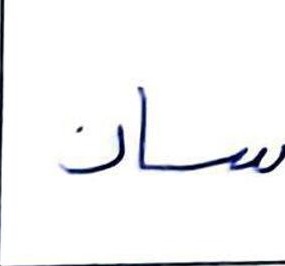 سان